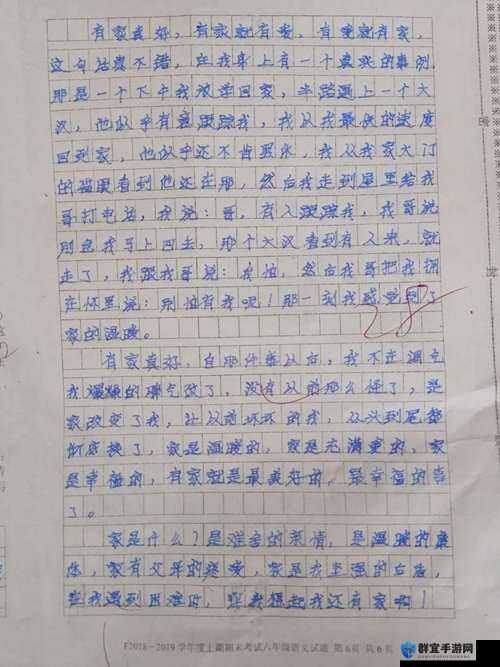 有家真好，有家就有爱，有爱就有家，
这句话真不错，在我身上有一个真实的事例，
那是一个下午我放学回家，半路遇上一个大
汉，他似乎有意跟踪我，我以我最快的速度
回到家，他似乎还不肯罢休，我从我家大门
的猫眼看到他还在那，然后我走到屋里给我
哥打电话，我说：哥，有人跟踪我，我哥说
别急我马上回去，那个大汉看到有人来，就
走了，我跟我哥说：我怕，然后我哥把我拥
在怀里说：别怕有我呢！那一刻我感觉到了
家的温暖。
28
有家真好，自那件事以后，我不在
我 的脾气改了，没有以前那么 了，是
家改变了我，让以前坏坏的我，从头到尾都
彻底换了，家是温暖的，家是充满爱的，家
是幸福的，有家就是最美好的，最幸福的
了。
家是什么？是难舍的亲情，是温暖的
体，家有父母的关爱，家是我坚强的后盾，
我遇到困难时， 我想起我还有家啊！
F2018－2019学年度上期期末考试六年级语文试题 第6页 共6页
群宜手游网